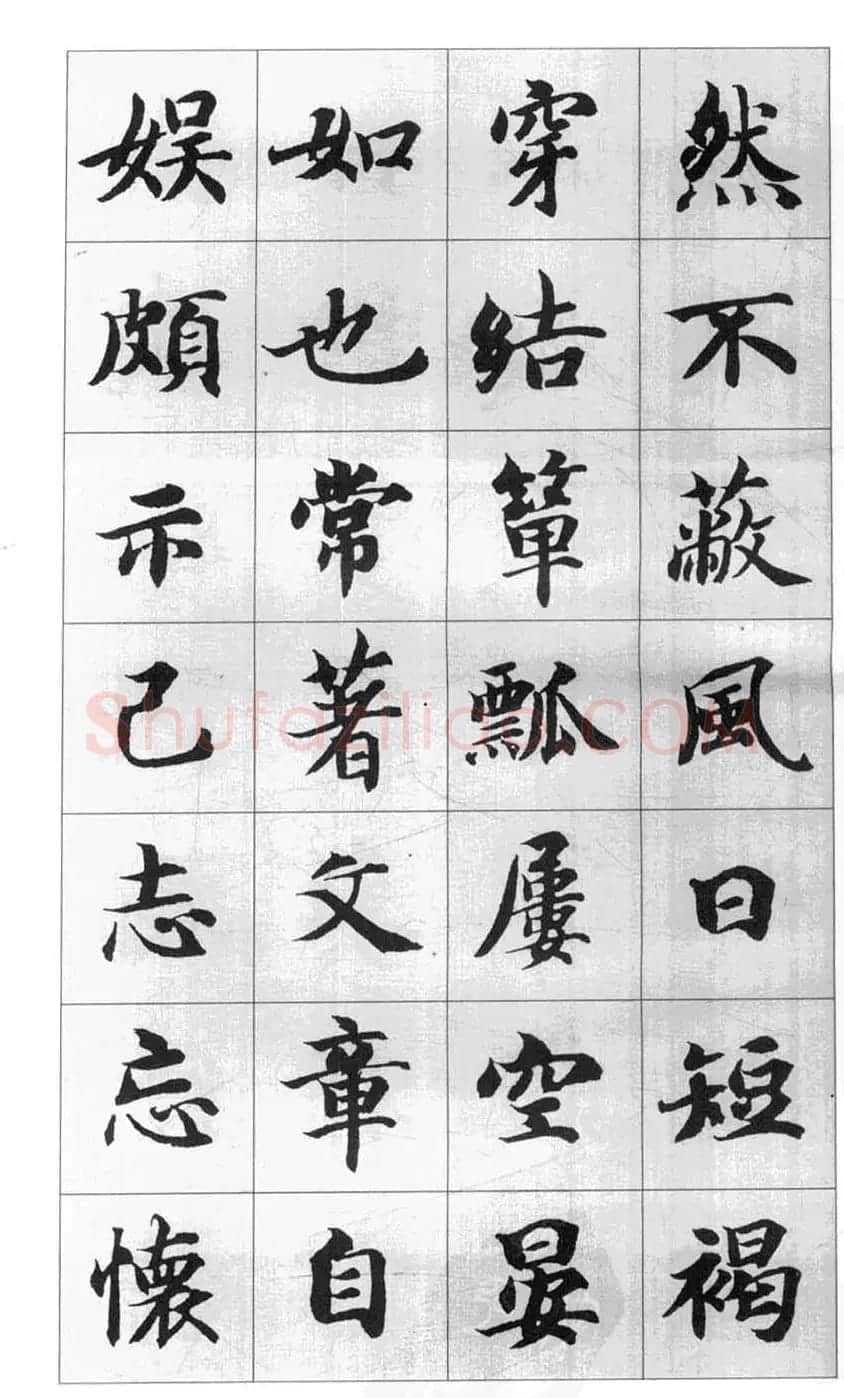 然不蔽風日短褐
穿結簞瓢屢空晏
如也常著文章自
娱頗示己志忘懷
Shufaziliao.COM